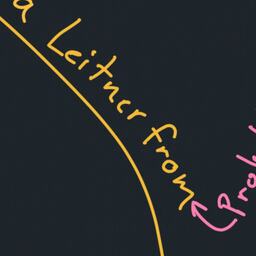 a Leitner from
Prob